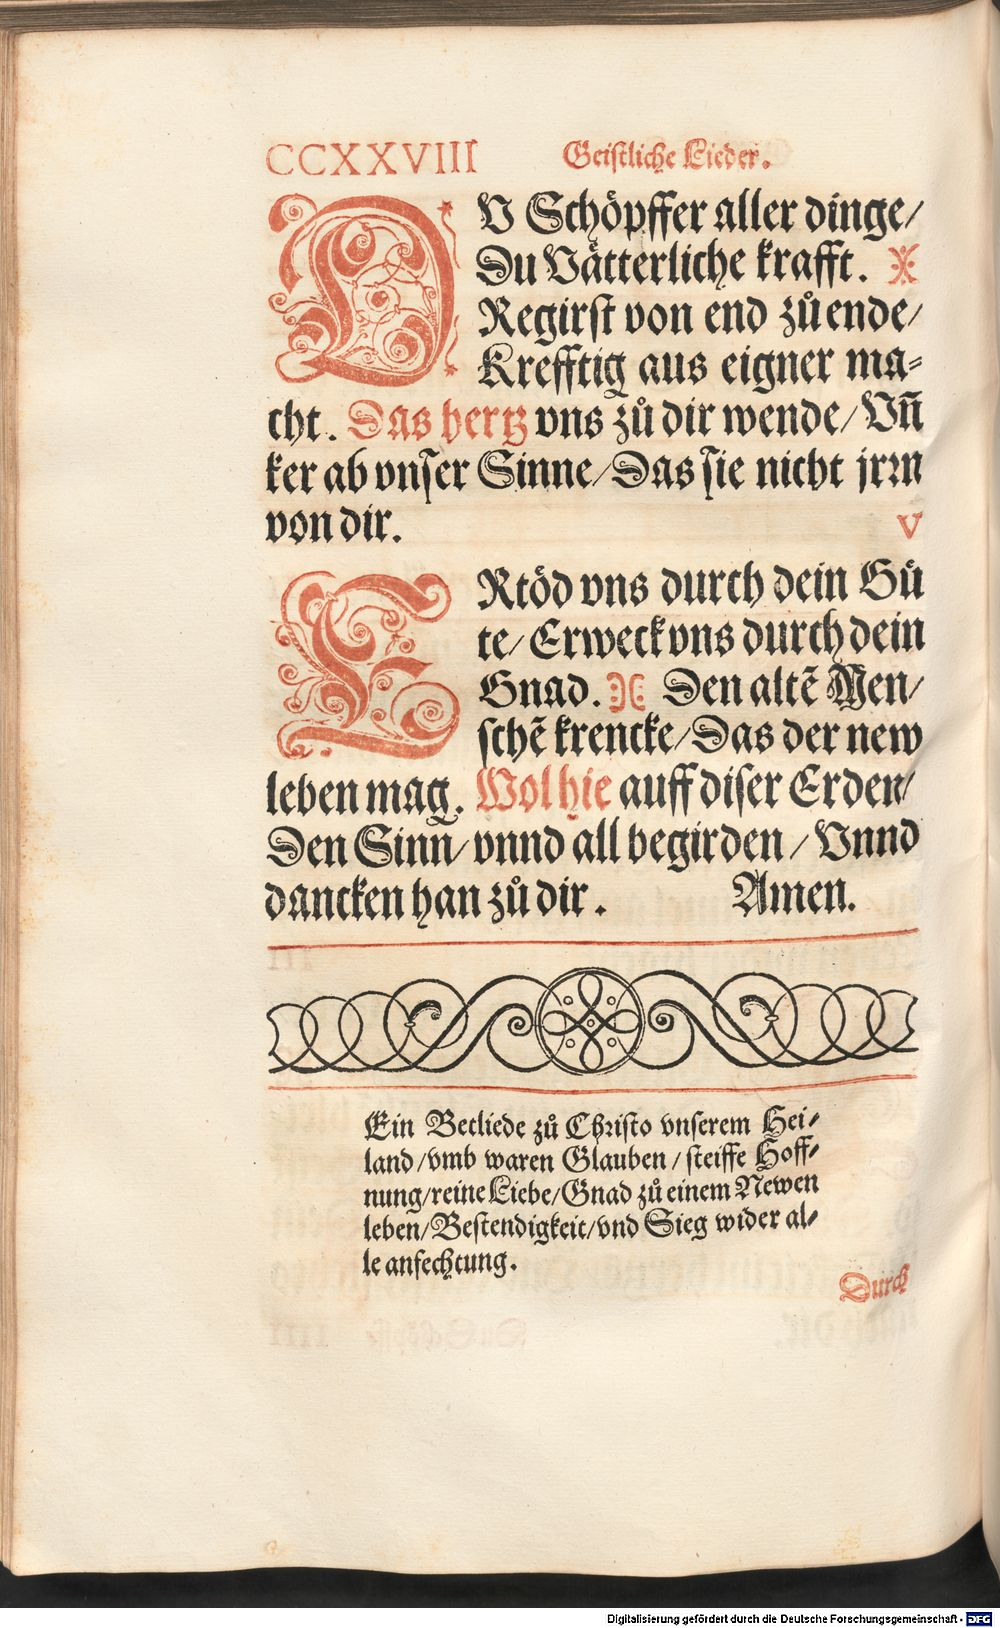 CCXXVIII Geistliche Lieder.
DV Schöpffer aller dinge/
Du Vätterliche krafft.
Regirst von end zů ende/
Krefftig aus eigner ma⸗
cht. Das hertz vns zů dir wende/ Vn̄
ker ab vnser Sinne/ Das sie nicht jrꝛn
von dir. V
ERtöd vns durch dein Gů
te/ Erweck vns durch dein
Gnad. Den altē Men/
schē krencke/ Das der new
leben mag. Wol hie auff diser Erden/
Den Sinn/ vnnd all begirden/ Vnnd
dancken han zů dir. Amen.
Ein Betliede zů Christo vnserem Hei⸗
land/ vmb waren Glauben/ steiffe Hoff⸗
nung/ reine Liebe/ Gnad zů einem Newen
leben/ Bestendigkeit/ vnd Sieg wider al⸗
le anfechtung.
Durch
Digitalisierung gefördert durch die Deutsche Forschungsgemeinschaft - DFG